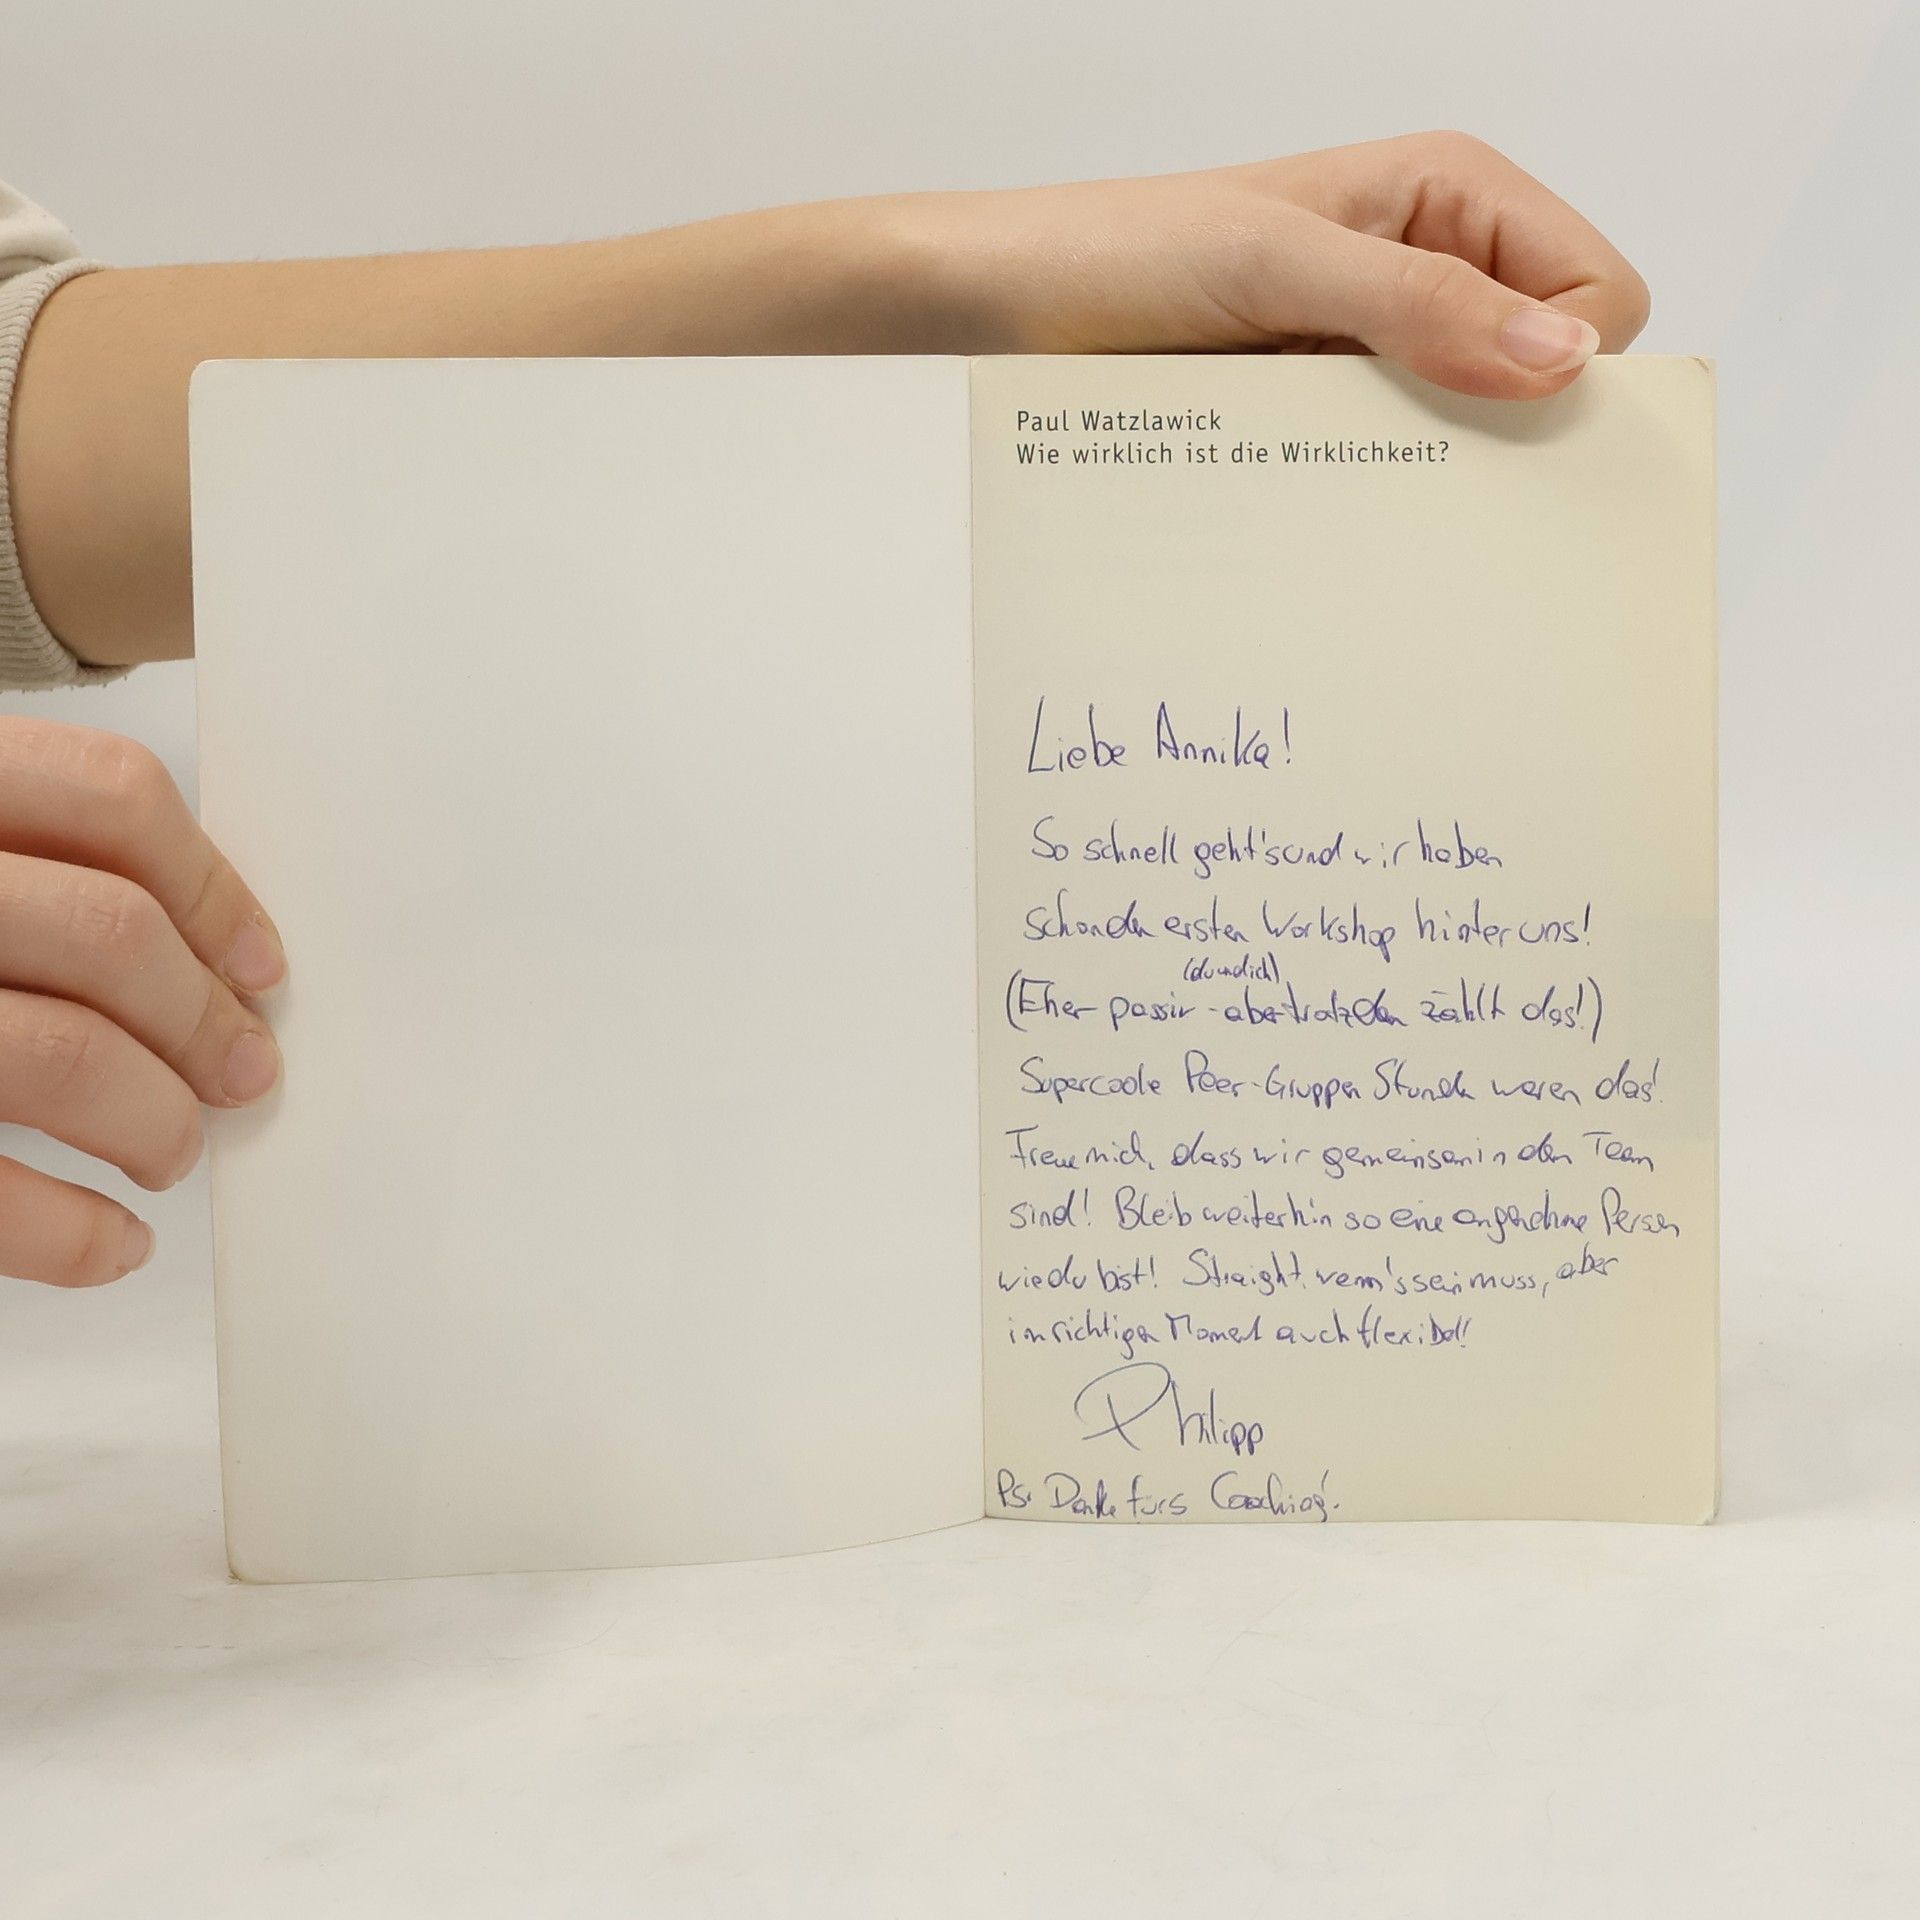 Paul Watzlawick
Wie wirklich ist die Wirklichkeit?
Liebe Annika!
So schnell geht's und wir haben
schon den ersten Workshop hinter uns!
(du und ich)
(Eher passiv - aber trotzdem zählt das!)
Supercoole Peer-Gruppen Stunden waren das!
Freue mich, dass wir gemeinsam in dem Team
sind! Bleib weiterhin so eine angenehme Person
wie du bist! Straight wenn's sein muss, aber
im richtigen Moment auch flexibel!
Philipp
Ps. Danke fürs Coaching!